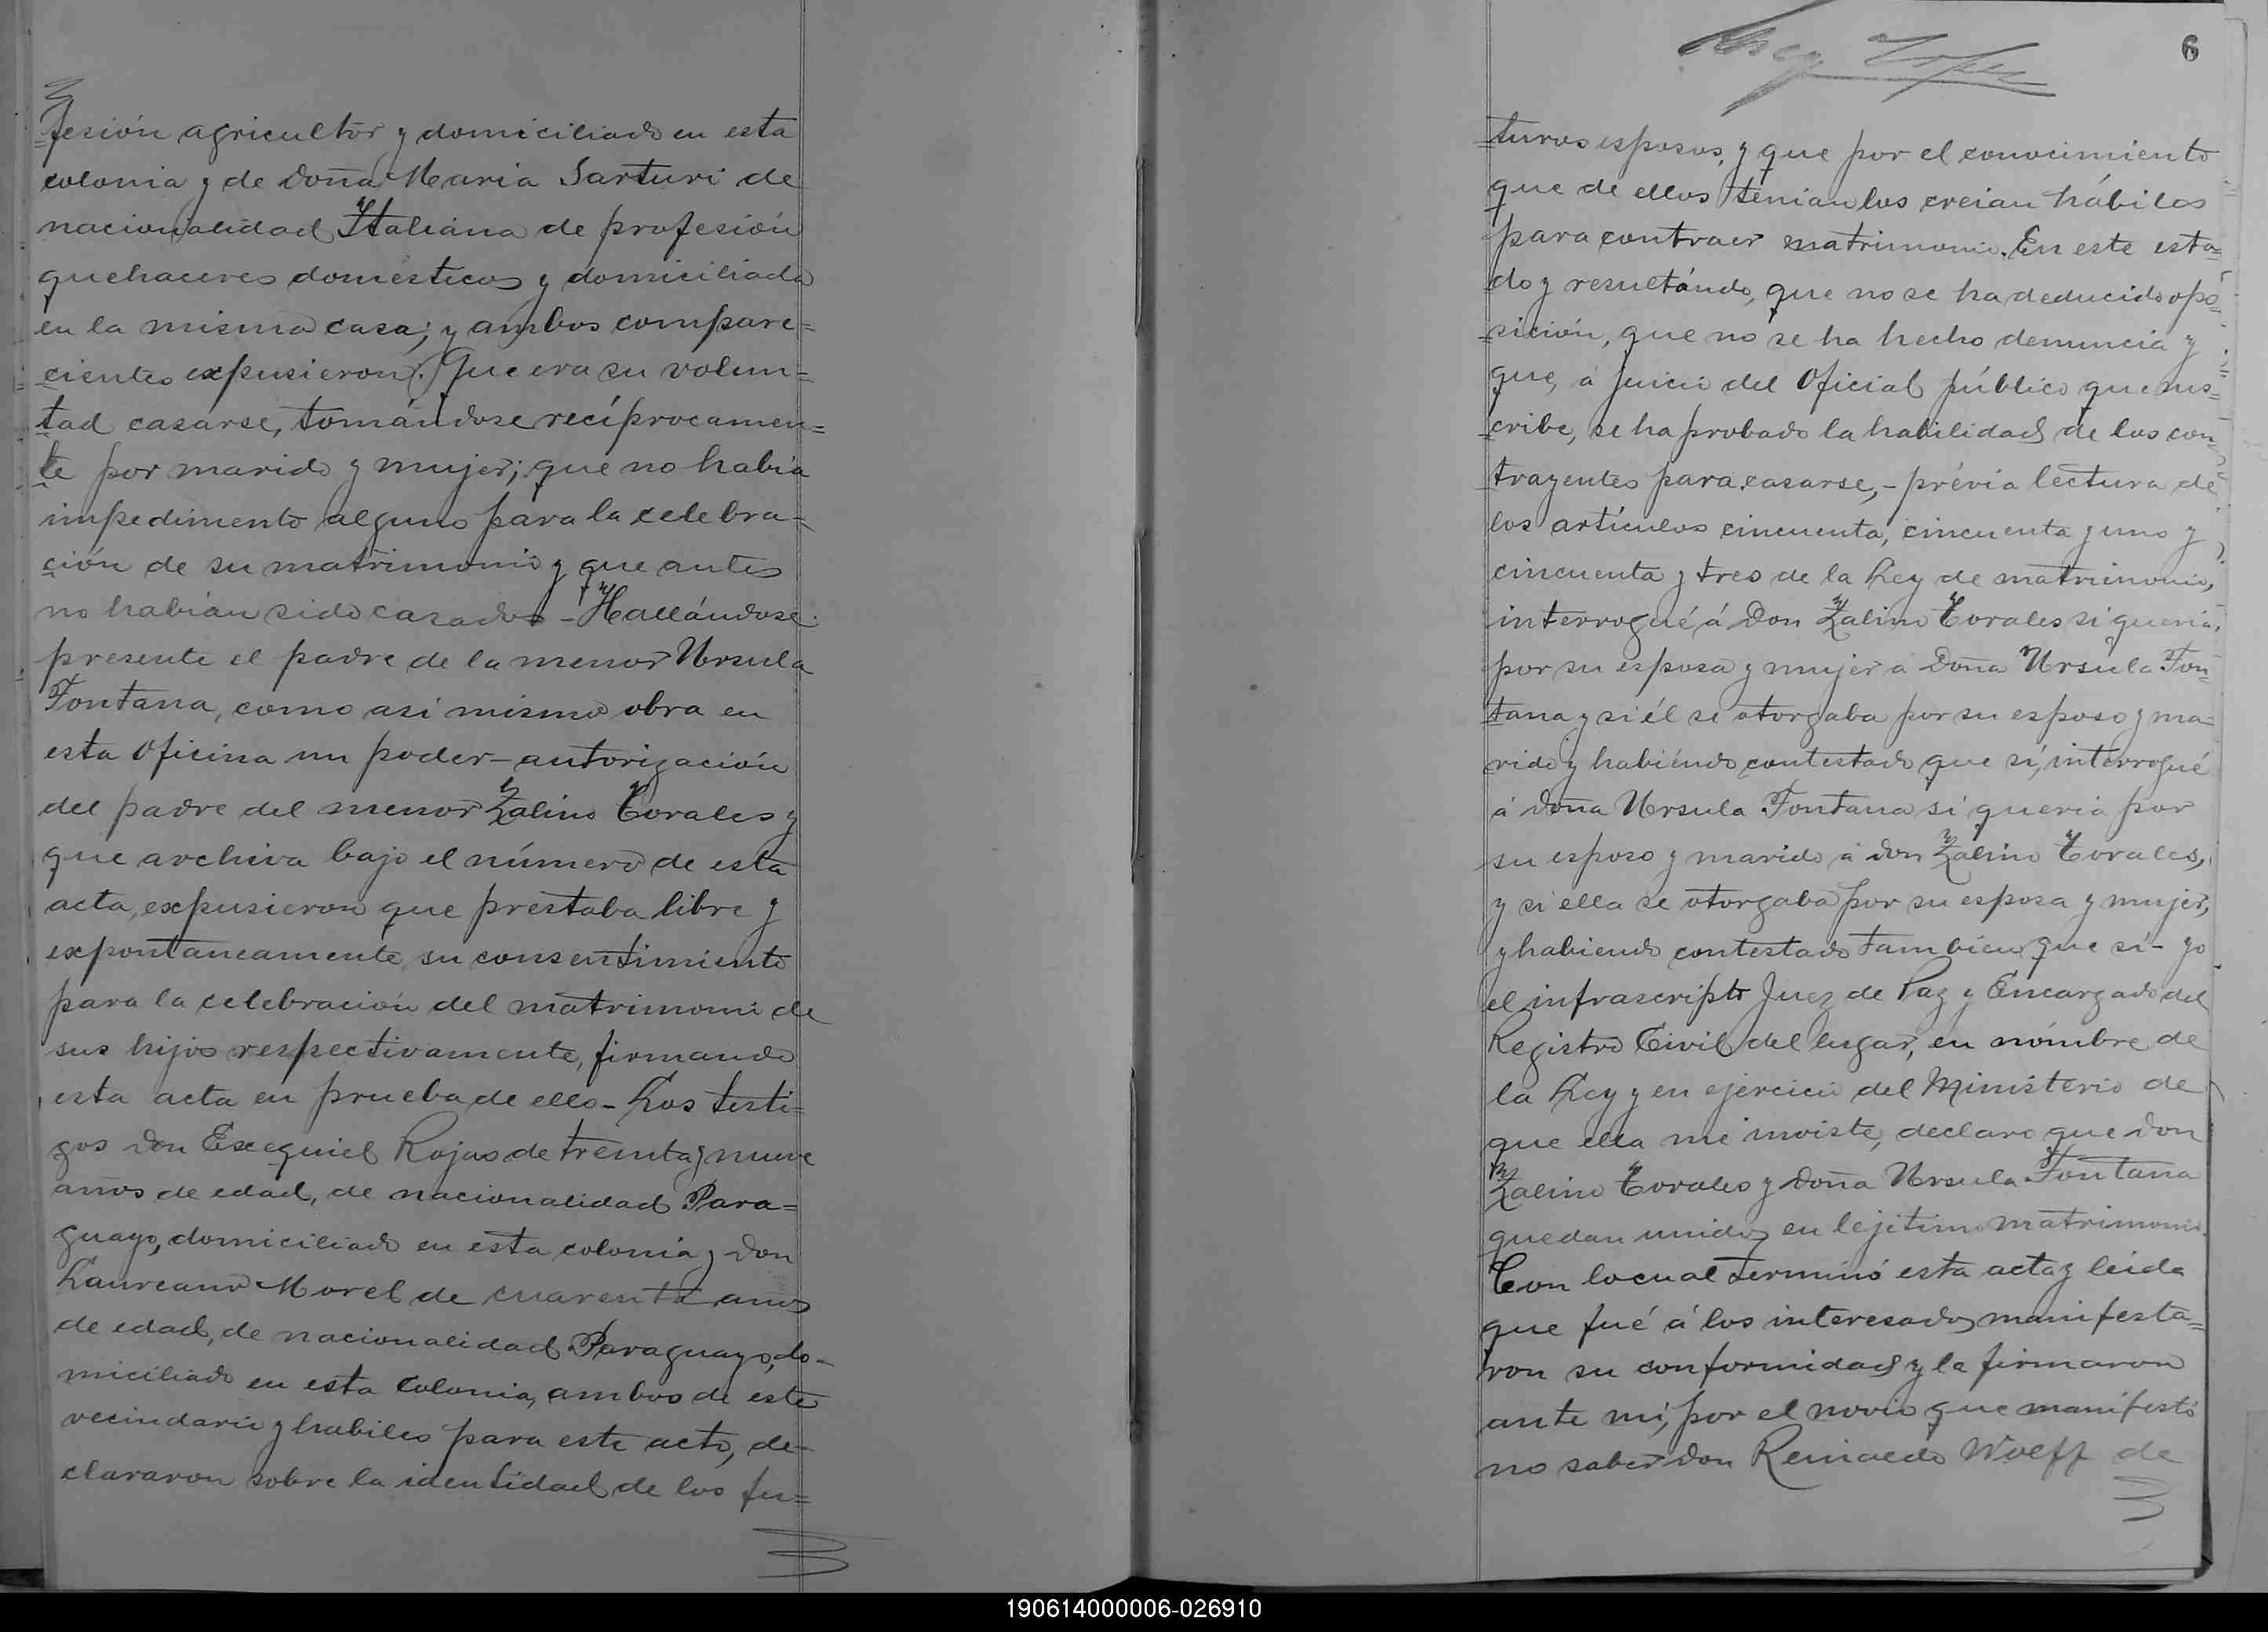 fesión agricultor y domiciliado en esta
colonia y de Doña Maria Sarturi de
nacionalidad Italiana de profesión
quehaceres domésticos y domiciliada
en la misma casa; y ambos compare=
cientes expusieron: Que era su volun=
tad casarse, tomándose recíprocamen=
te por marido y mujer; que no habia
impedimento alguno para la celebra=
ción de su matrimonio y que antes
no habían sido casados - Hallándose
presente el padre de la menor Ursula
Fontana, como asi mismo obra en
esta Oficina un poder-autorización
del padre del menor Zalino Corales y
que archiva bajo el número de esta
acta, expusieron que prestaba libre y
expontaneamente su consentimiento
para la celebración del matrimonio de
sus hijos respectivamente, firmando
esta acta en prueba de ello - Los testi=
gos Don Exequiel Rojas de treinta y nueve
años de edad, de nacionalidad Para=
guayo, domiciliado en esta colonia y Don
Laureano Morel de cuarenta años
de edad, de nacionalidad Paraguayo, do-
miciliado en esta Colonia, ambos de este
vecindario y habiles para este acto, de-
clararon sobre la identidad de los fu=
6
turos esposos, y que por el conocimiento
que de ellos tenian los creian hábiles
para contraer matrimonio. En este esta=
do y resultándo, que no se ha deducido opo=
sición, que no se ha hecho denuncia y
que, á juicio del Oficial público que sus=
cribe, se ha probado la habilidad de los con=
trayentes para casarse, - prévia lectura de
los artículos cincuenta, cincuenta y uno y
cincuenta y tres de la Ley de matrimonio,
interrogué á Don Zalino Corales si queria
por su esposa y mujer á Doña Ursula Fon=
tana y si él se otorgaba por su esposo y ma=
rido y habiéndo contestado que sí, interrogué
á Doña Ursula Fontana si queria por
su esposo y marido á Don Zalino Corales,
y si ella se otorgaba por su esposa y mujer,
y habiendo contestado tambien que sí - yo
el infrascripto Juez de Paz y Encargado del
Registro Civil del lugar, en nómbre de
la Ley y en ejercicio del Ministerio de
que ella me inviste, declaro que Don
Zalino Corales y Doña Ursula Fontana
quedan unidos en lejitimo matrimonio.
Con lo cual terminó esta acta y leida
que fué á los interesados manifesta=
ron su conformidad y la firmaron
ante mí, por el novio que manifestó
no saber Don Reinaldo Wolff de
190614000006-026910